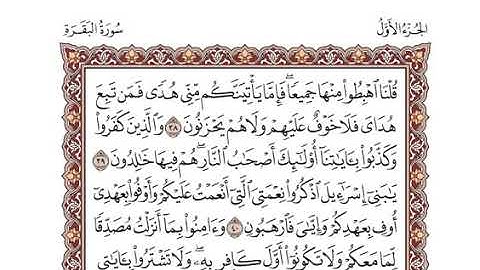 الجُزْءُ الأَوَّلُ
سُورَةُ البَقَرَةِ
قُلْنَا ٱهْبِطُوا۟ مِنْهَا جَمِيعًۭا ۖ فَإِمَّا يَأْتِيَنَّكُم مِّنِّى هُدًۭى فَمَن تَبِعَ
هُدَاىَ فَلَا خَوْفٌ عَلَيْهِمْ وَلَا هُمْ يَحْزَنُونَ ٣٨ وَٱلَّذِينَ كَفَرُوا۟
وَكَذَّبُوا۟ بِـَٔايَـٰتِنَآ أُو۟لَـٰٓئِكَ أَصْحَـٰبُ ٱلنَّارِ ۖ هُمْ فِيهَا خَـٰلِدُونَ ٣٩
يَـٰبَنِىٓ إِسْرَٰٓءِيلَ ٱذْكُرُوا۟ نِعْمَتِىَ ٱلَّتِىٓ أَنْعَمْتُ عَلَيْكُمْ وَأَوْفُوا۟ بِعَهْدِىٓ
أُوفِ بِعَهْدِكُمْ وَإِيَّـٰىَ فَٱرْهَبُونِ ٤٠ وَءَامِنُوا۟ بِمَآ أَنزَلْتُ مُصَدِّقًۭا
لِّمَا مَعَكُمْ وَلَا تَكُونُوٓا۟ أَوَّلَ كَافِرٍۭ بِهِۦ ۖ وَلَا تَشْتَرُوا۟ بِـَٔايَـٰتِى